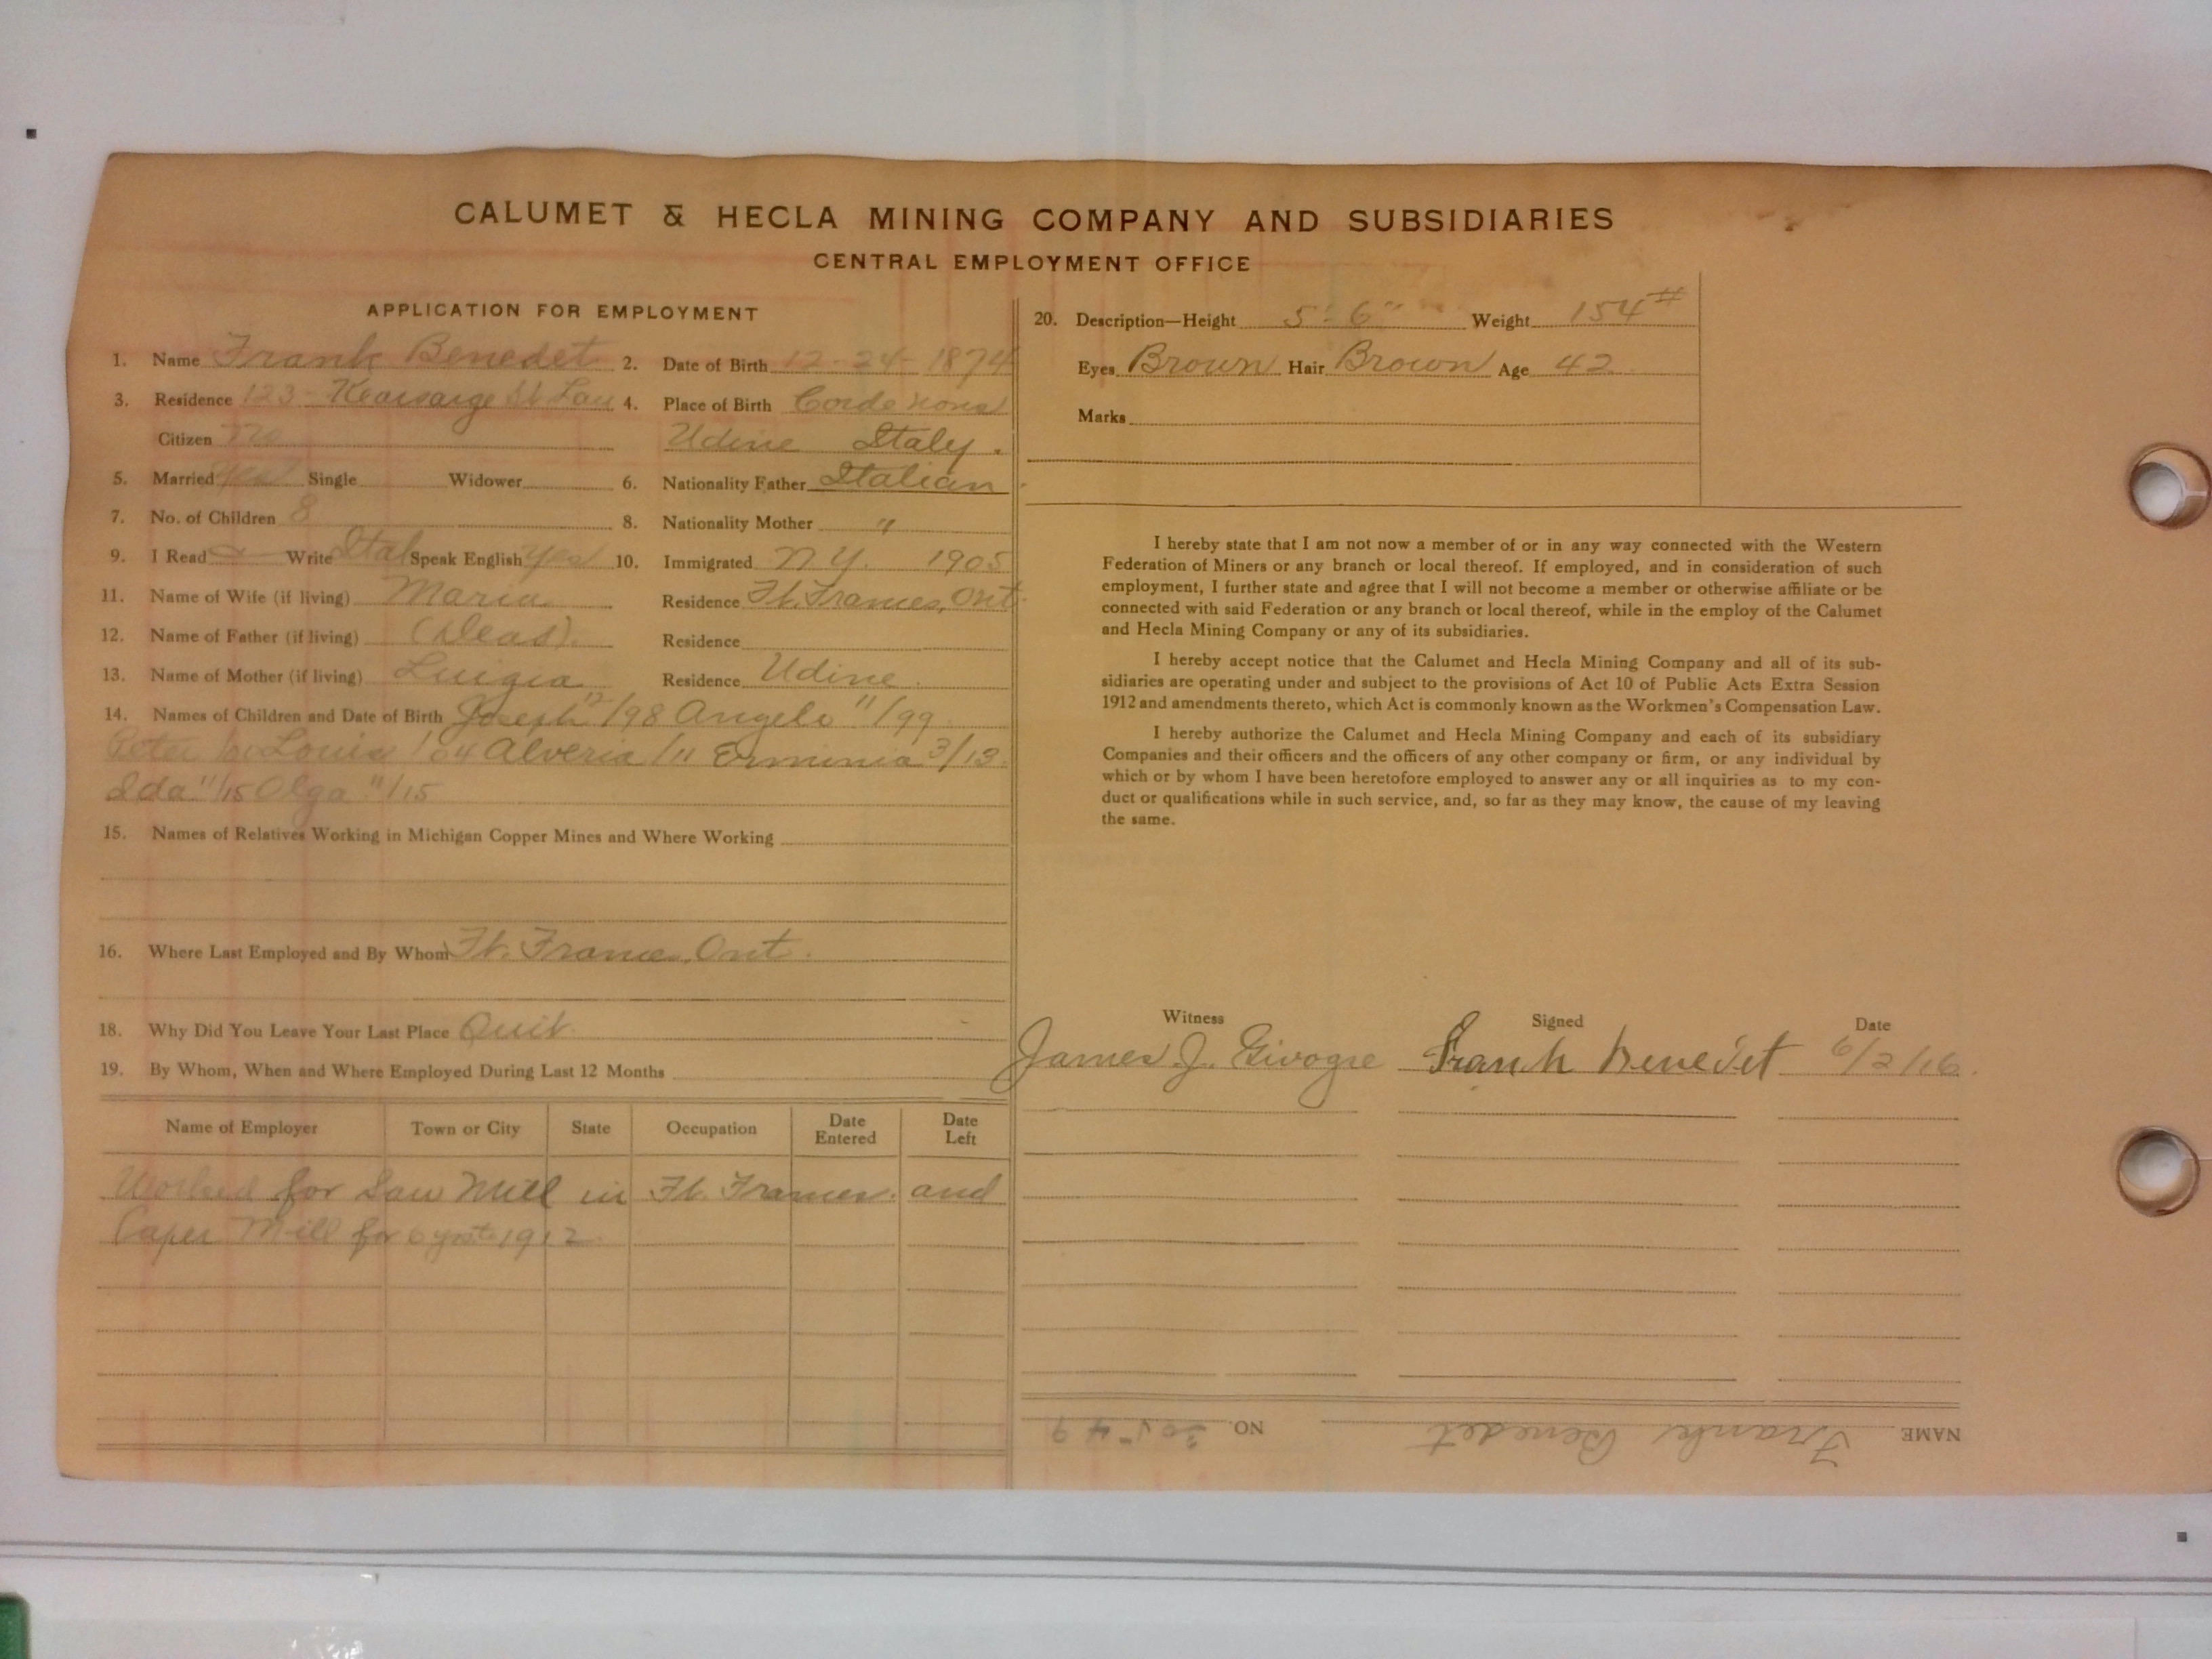 CALUMET & HECLA MINING COMPANY AND SUBSIDIARIES
CENTRAL EMPLOYMENT OFFICE
APPLICATION FOR EMPLOYMENT
1. Name Frank Benedet 2. Date of Birth 12-24-1874
3. Residence 123 - Kearsarge St Lau 4. Place of Birth Cordenons
Citizen no Udine Italy.
5. Married yes Single Widower 6. Nationality Father Italian
7. No. of Children 8 8. Nationality Mother "
9. I Read Write Ital Speak English yes 10. Immigrated N.Y. 1905
11. Name of Wife (if living) Maria Residence Ft. Frances, Ont.
12. Name of Father (if living) (Dead). Residence
13. Name of Mother (if living) Luigia Residence Udine.
14. Names of Children and Date of Birth Joseph 12/98 Angelo 11/99
Peter Louis '04 Alveria /11 Erminia 3/13
Ida 11/15 Olga 11/15
15. Names of Relatives Working in Michigan Copper Mines and Where Working
16. Where Last Employed and By Whom Ft. Frances, Ont.
18. Why Did You Leave Your Last Place Quit
19. By Whom, When and Where Employed During Last 12 Months
Name of Employer Town or City State Occupation Date Entered Date Left
Worked for Saw Mill in Ft. Frances. and
Paper Mill for 6 yrs 1912
20. Description—Height 5'-6" Weight 154#
Eyes Brown Hair Brown Age 42
Marks
I hereby state that I am not now a member of or in any way connected with the Western
Federation of Miners or any branch or local thereof. If employed, and in consideration of such
employment, I further state and agree that I will not become a member or otherwise affiliate or be
connected with said Federation or any branch or local thereof, while in the employ of the Calumet
and Hecla Mining Company or any of its subsidiaries.
I hereby accept notice that the Calumet and Hecla Mining Company and all of its sub-
sidiaries are operating under and subject to the provisions of Act 10 of Public Acts Extra Session
1912 and amendments thereto, which Act is commonly known as the Workmen's Compensation Law.
I hereby authorize the Calumet and Hecla Mining Company and each of its subsidiary
Companies and their officers and the officers of any other company or firm, or any individual by
which or by whom I have been heretofore employed to answer any or all inquiries as to my con-
duct or qualifications while in such service, and, so far as they may know, the cause of my leaving
the same.
Witness Signed Date
James J. Givogre Frank Benedet 6/2/16.
NAME Frank Benedet NO. 30549